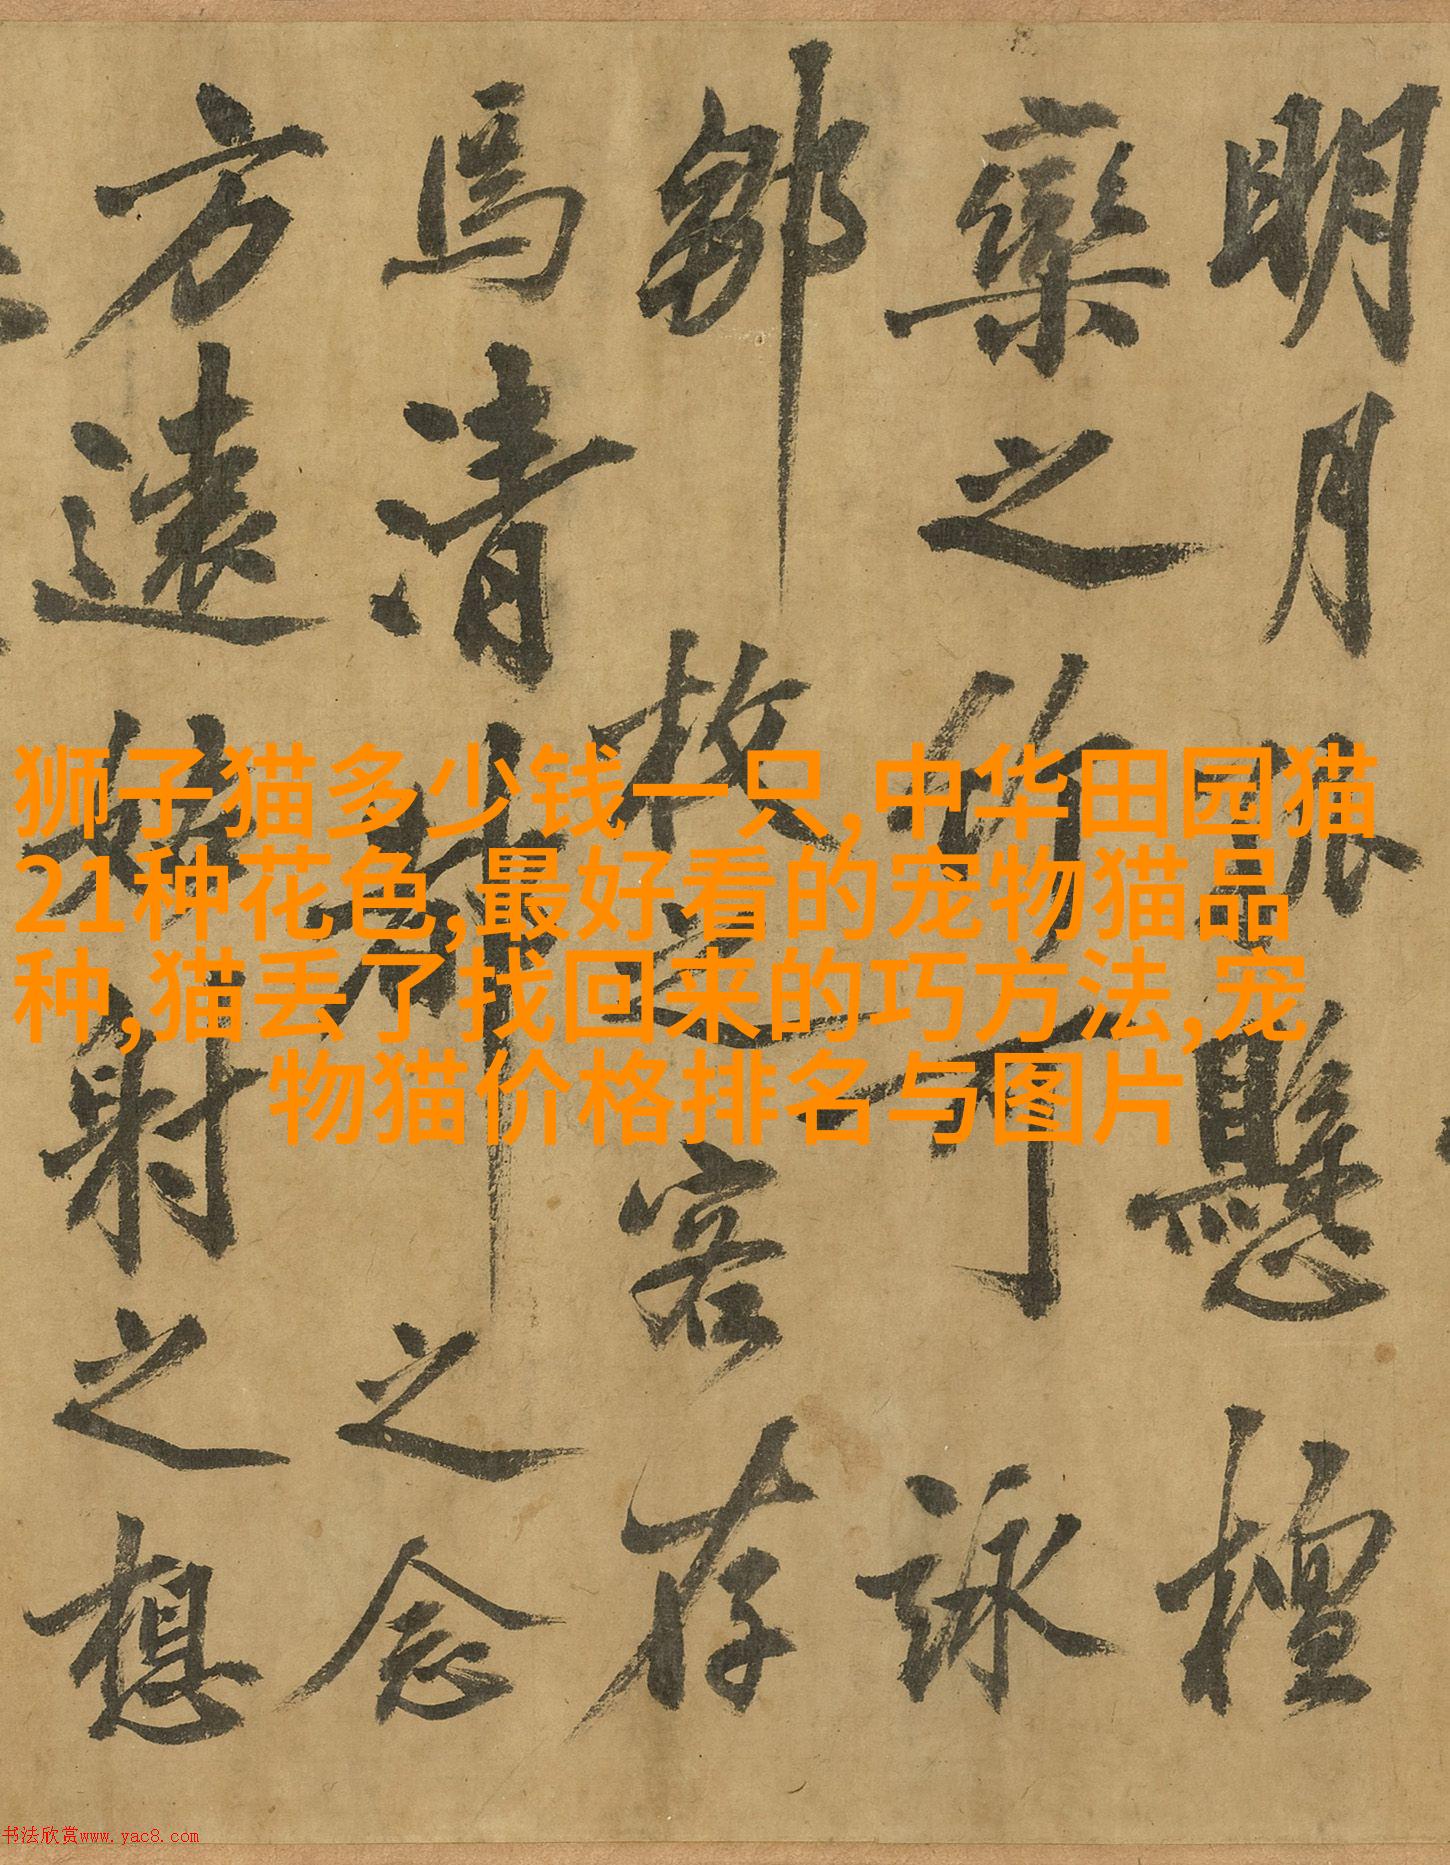 明月懸檀
欒之可詠
鄒枚之客存
馬清之念
方遠姑射之想
狮子猫多少钱一只,中华田园猫
21种花色,最好看的宠物猫品
种,猫丢了找回来的巧方法,宠
物猫价格排名与图片
书法欣赏www.yac8.com